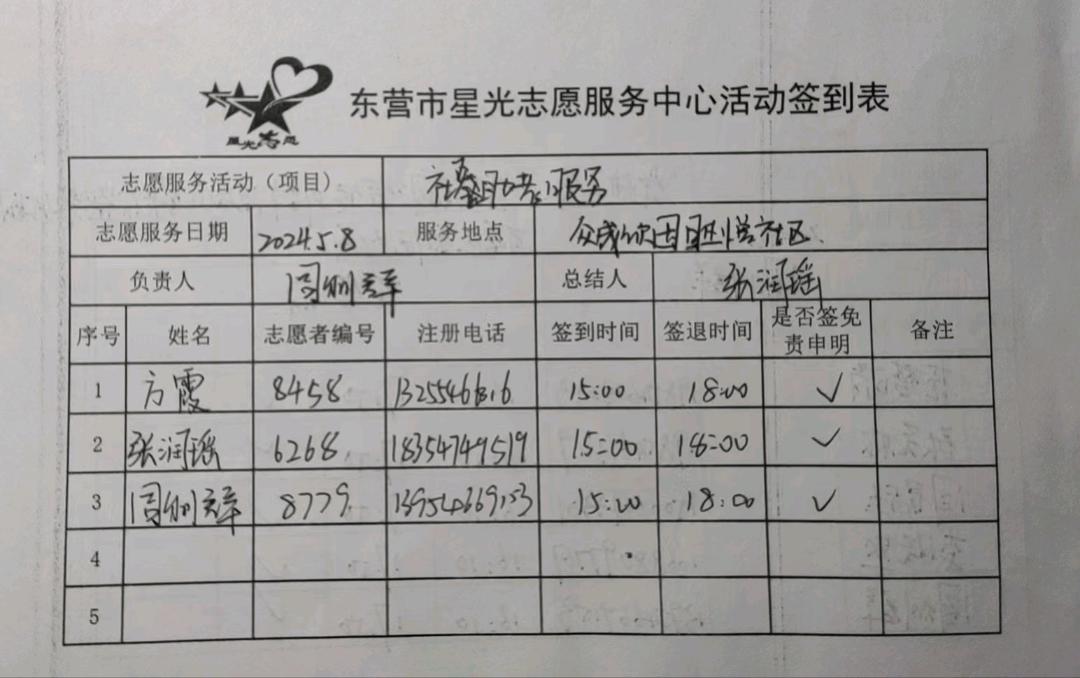 星光志愿
东营市星光志愿服务中心活动签到表
志愿服务活动（项目） 助老服务
志愿服务日期 2024.5.8 服务地点 社区
负责人 总结人 张润瑶
序号 姓名 志愿者编号 注册电话 签到时间 签退时间 是否签免责申明 备注
1 方霞 8458 15:00 18:00 ✓
2 张润瑶 6268 18354749519 15:00 18:00 ✓
3 8779 15:00 18:00 ✓
4
5